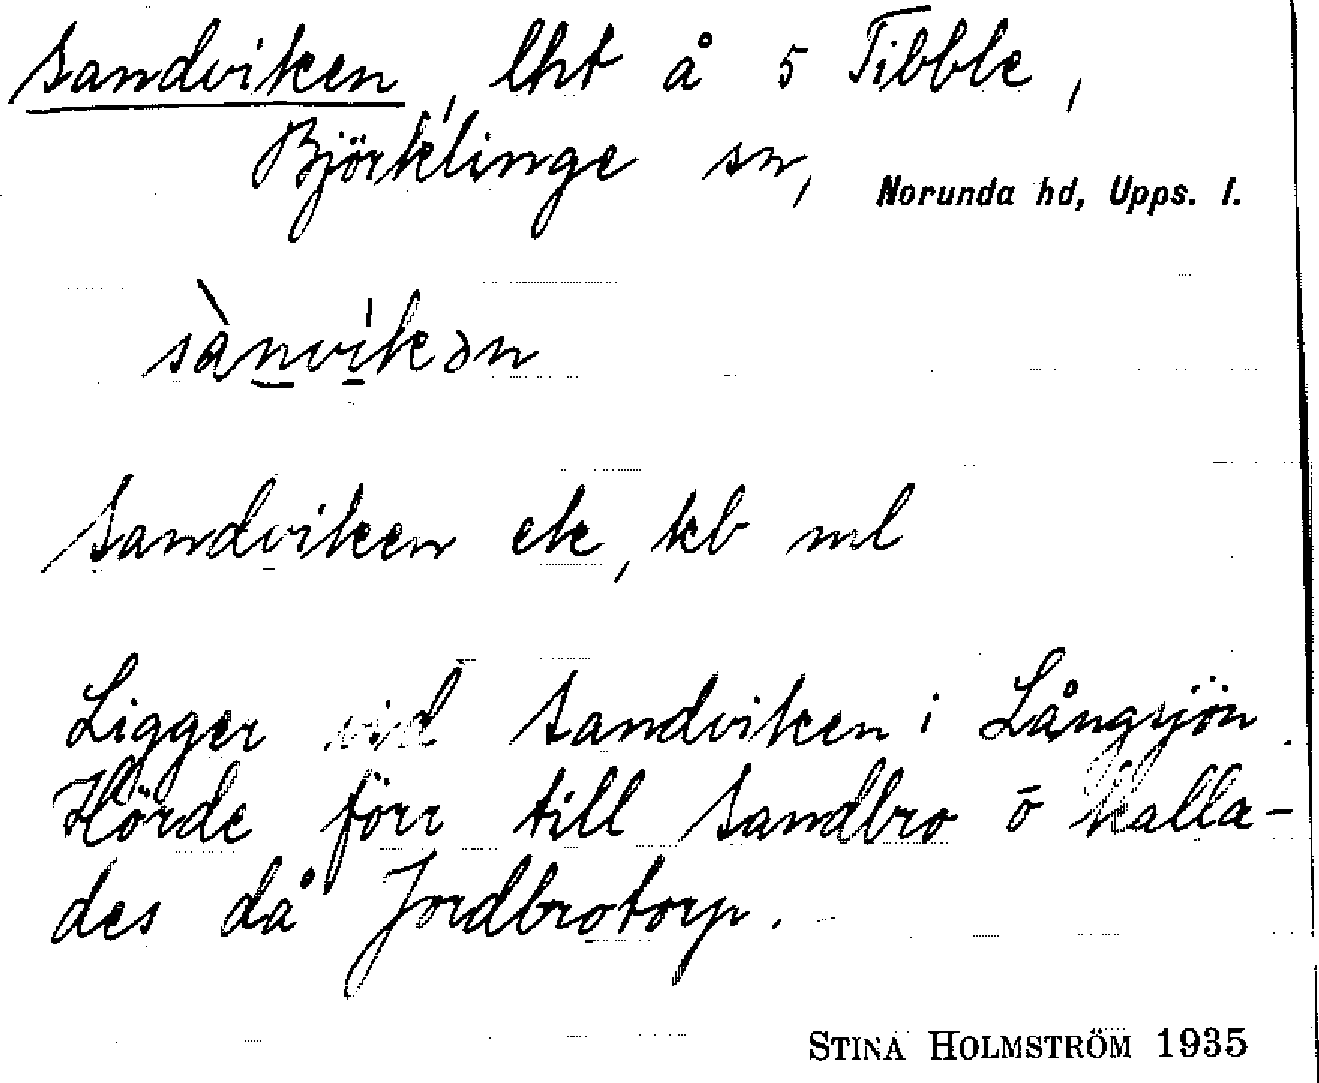 Sandviken, lht å 5 Tibble,
Björklinge sn, Norunda hd, Upps. l.
sànvíkən
Sandviken ek, kb ml
Ligger vid Sandviken i Långsjön.
Hörde förr till Sandbro o kalla-
des då Jordbrotorp.
STINA HOLMSTRÖM 1935